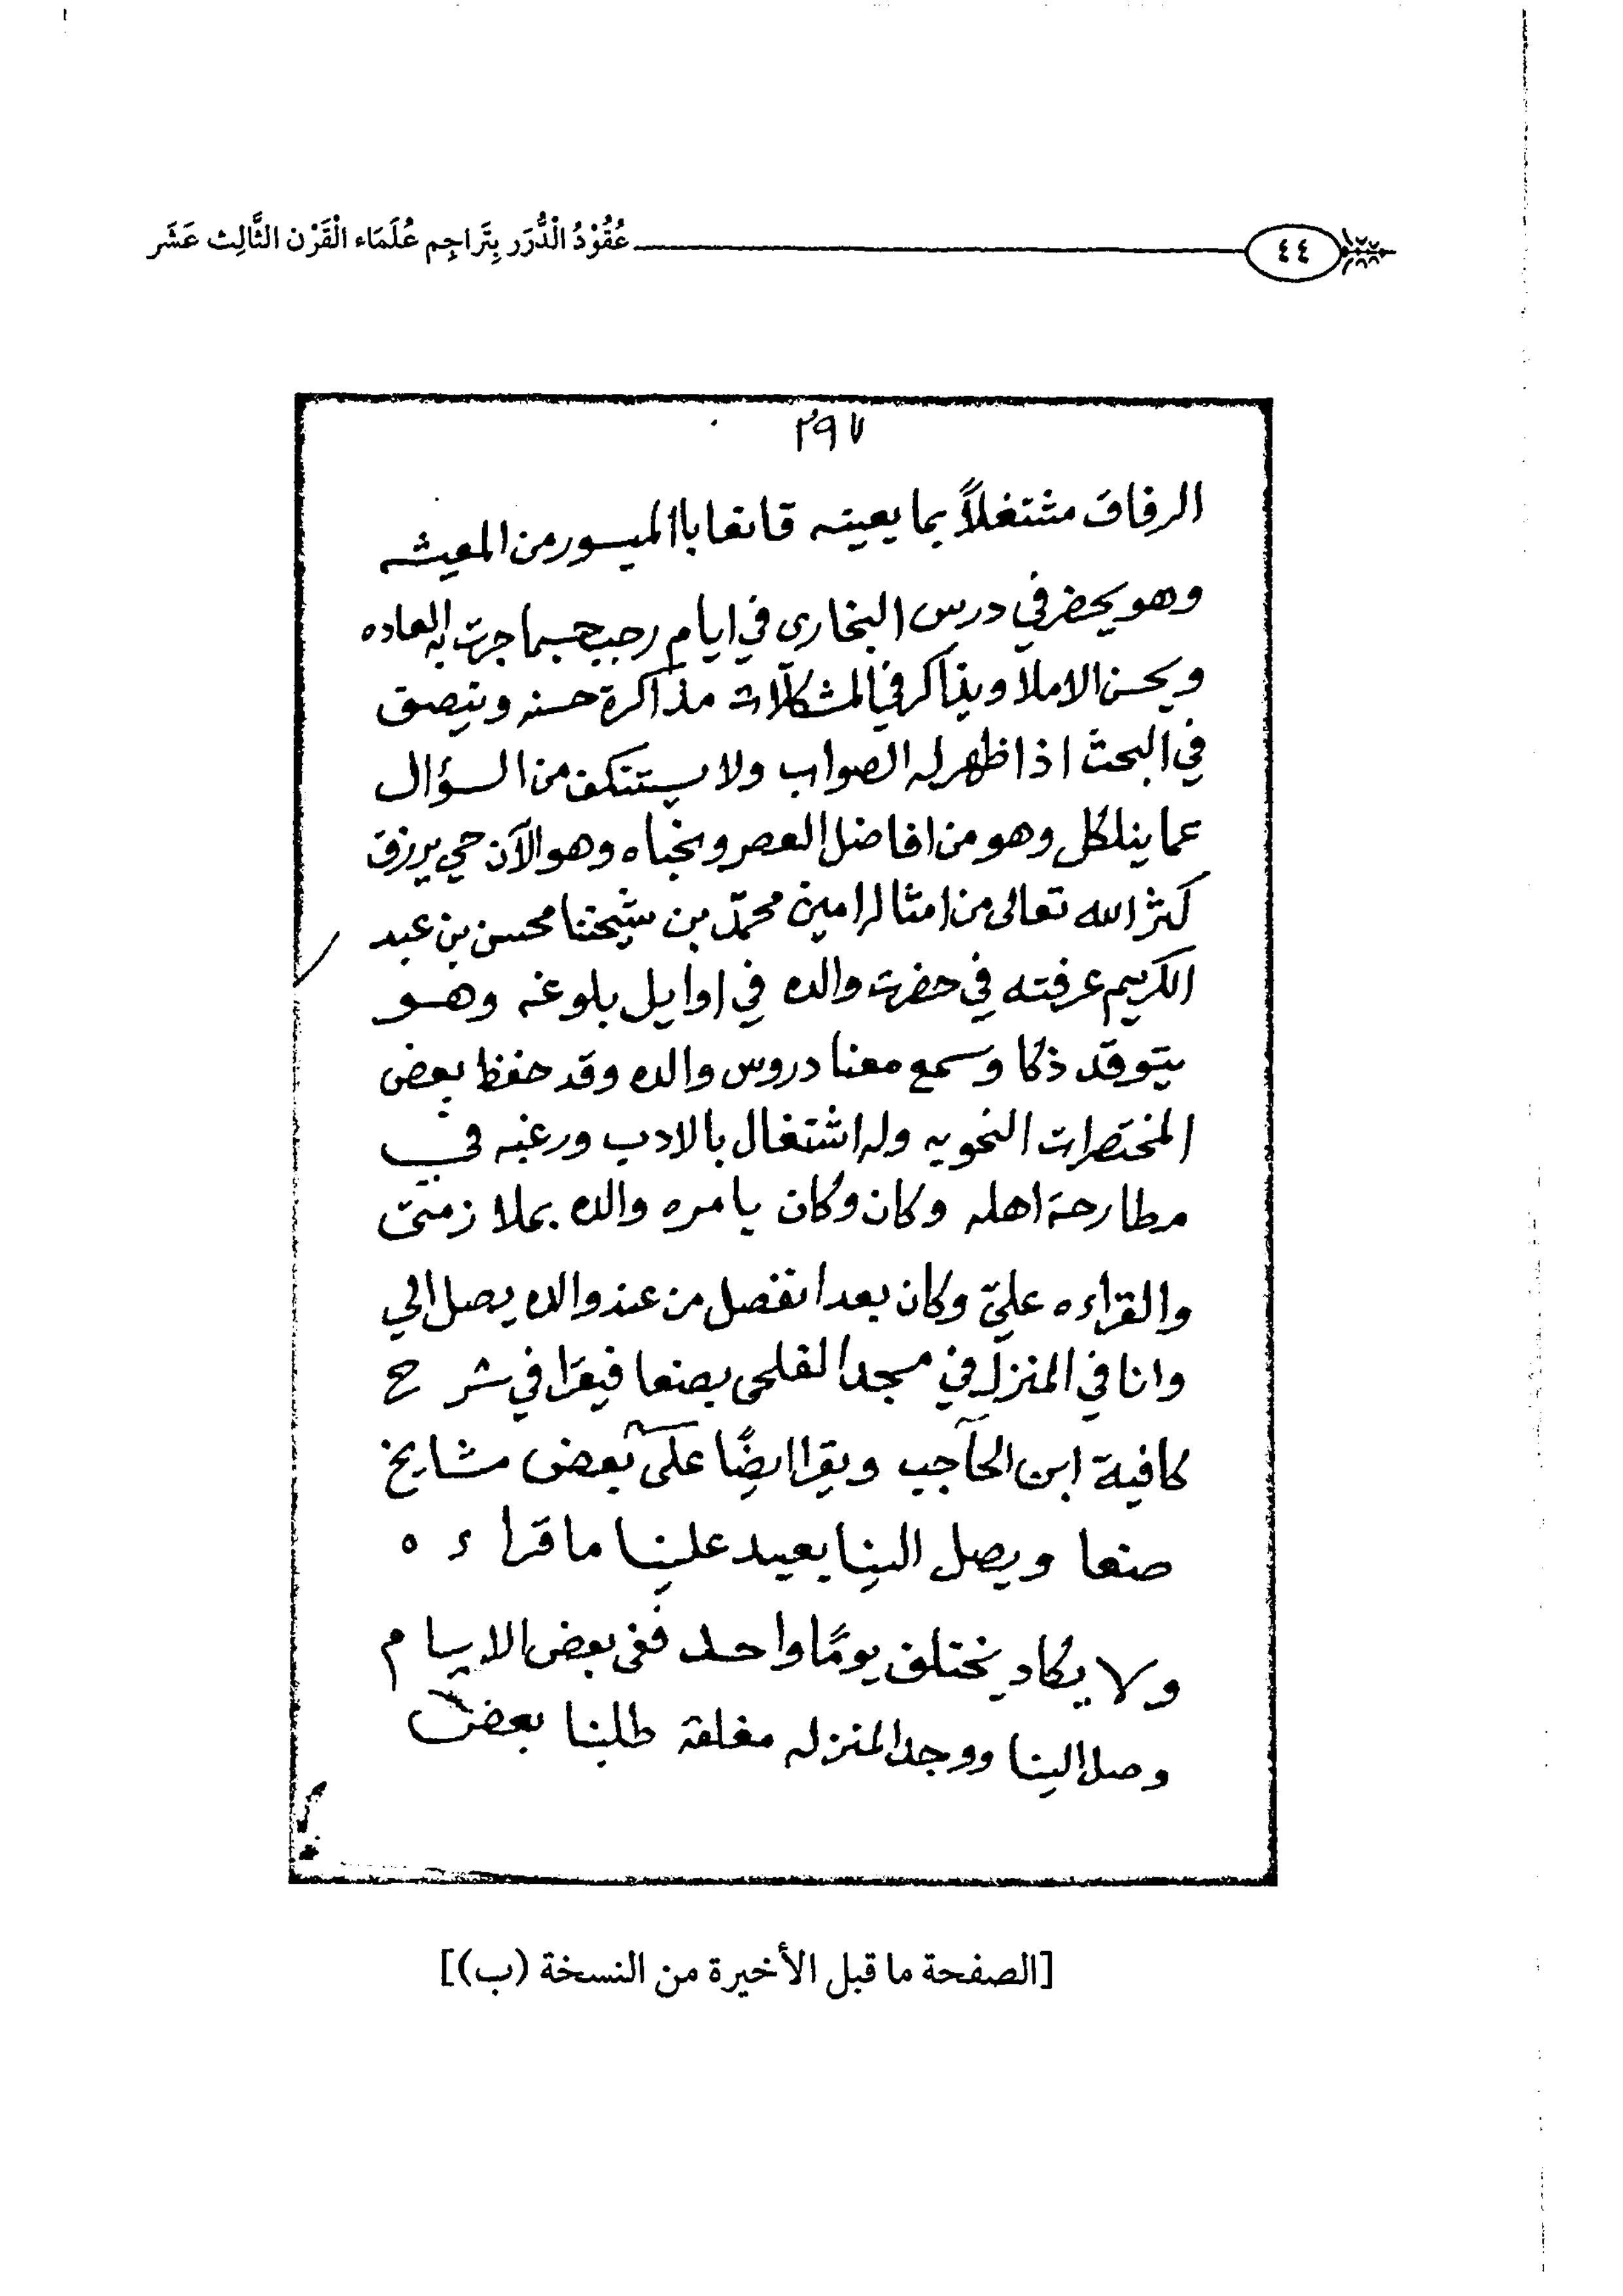 عُقُوْدُ الْدُّرَر بِتَرَاجِم عُلَمَاء الْقَرْن الثَّالِث عَشَر
٤٤
٢٩٧
الرفاق مشتغلاً بما يعينه قانعا باالميسور من المعيشه
وهو يحضر في درس البخاري في ايام رجب حسبما جرت به العاده
ويحسن الاملا ويذاكر في المشكلات مذاكرة حسنه وينصف
في البحث اذا ظهر له الصواب ولا يستنكف من السؤال
عما وهو من افاضل العصر ونخباه وهو الآن حي يرزق
كثر الله تعالى من امثاله امين محمّد بن شيخنا محسن بن عبد
الكريم عرفته في حضرت والده في اوايل بلوغه وهو
يتوقد ذكا وسمع معنا دروس والده وقد حفظ بعض
المختصرات النحويه وله اشتغال بالادب ورغبه في
مطارحة اهله وكان وكان يامره والده بملازمتي
والقراءه عليّ وكان بعد انفصل من عند والده يصل الي
وانا في المنزله في مسجد الفلحي بصنعا فيقرا في شرح
كافية ابن الحاجب ويقرا ايضًا على بعض مشايخ
صنعا ويصل الينا يعيد علينا ما قراءه
ولا يكاد يختلف يومًا واحد ففي بعض الايام
وصل الينا ووجد المنزله مغلقة طلبنا بعض
[الصفحة ما قبل الأخيرة من النسخة (ب)]